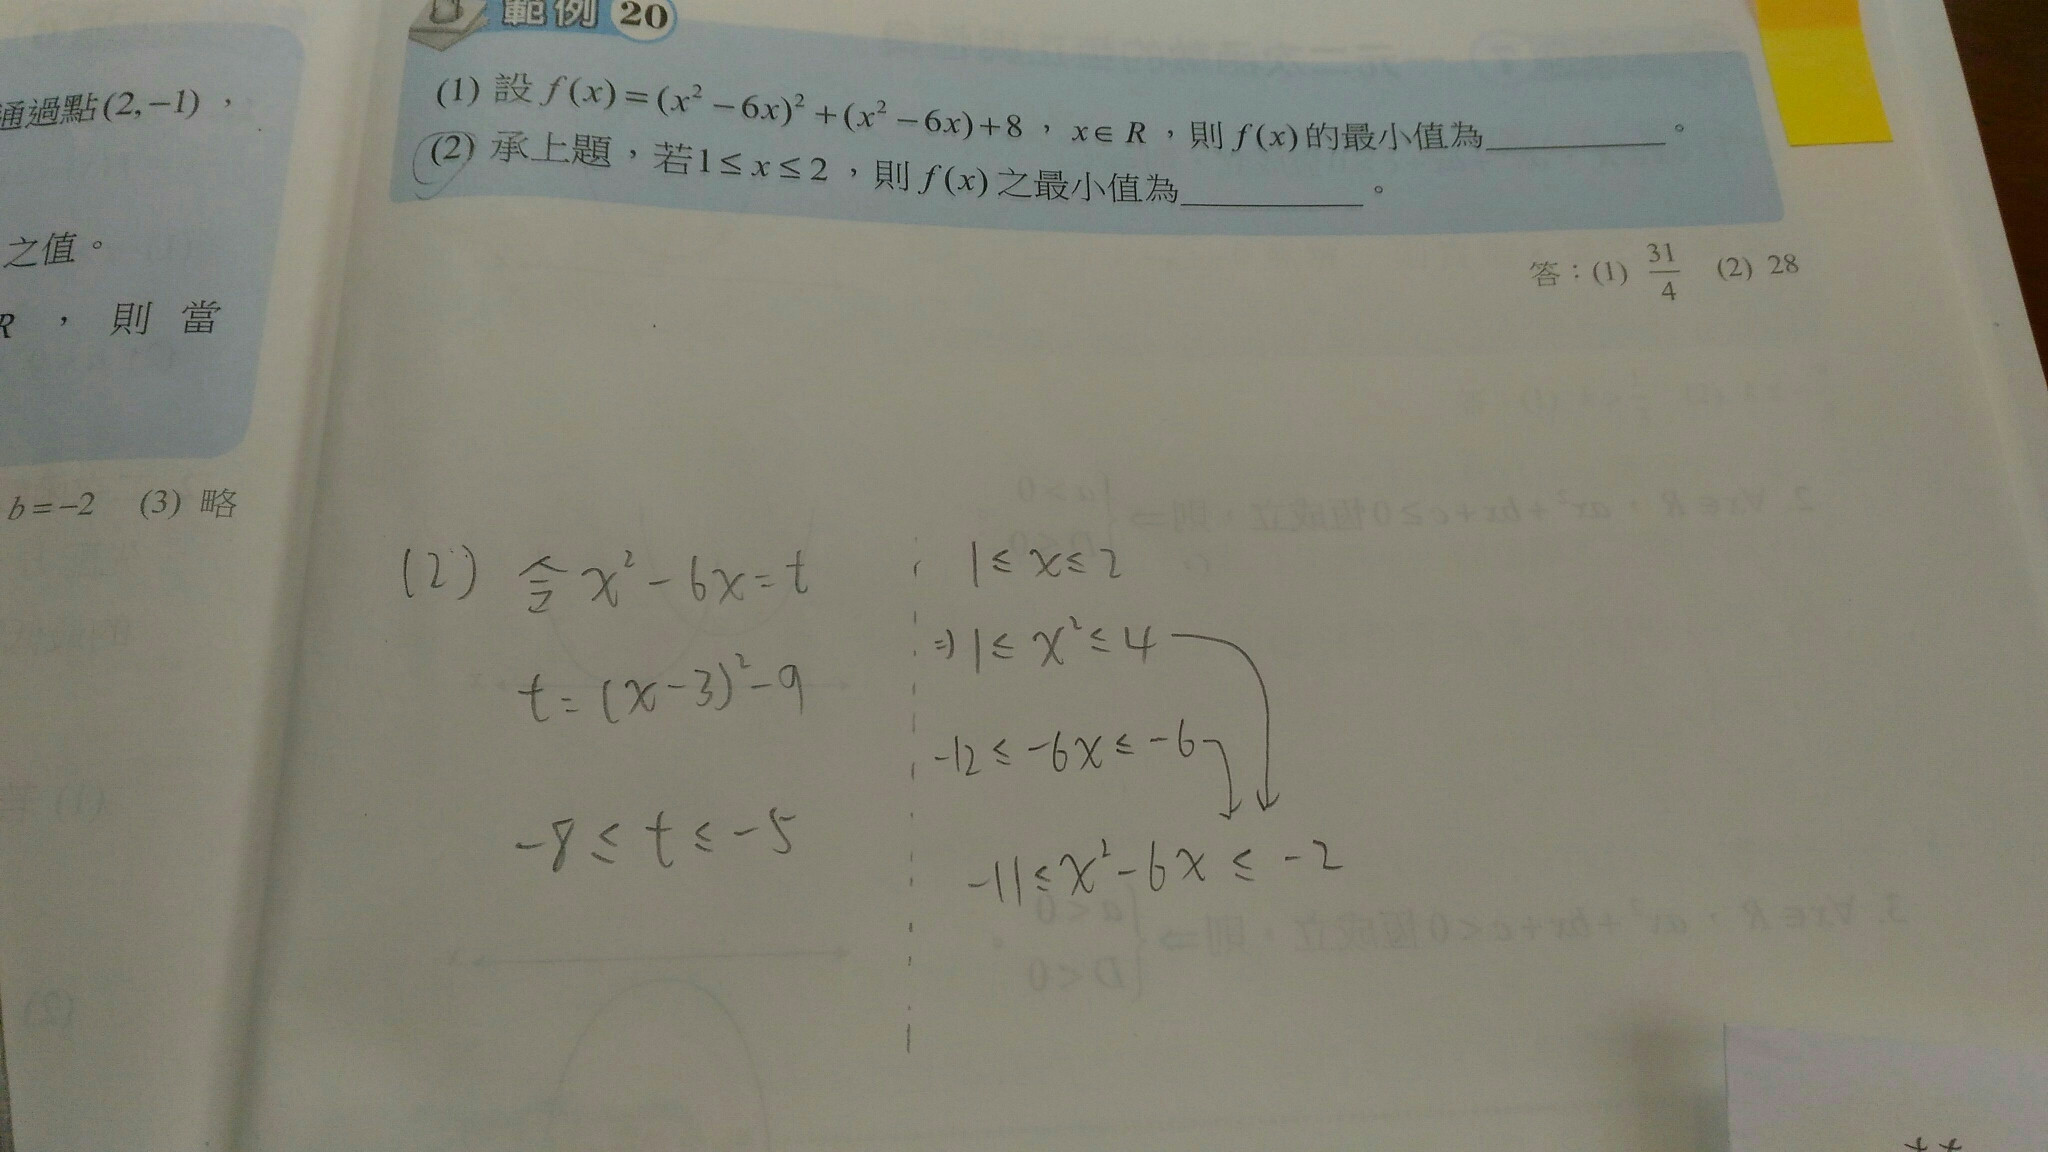 通過點(2,−1)，
之值。
R ，則當
b=−2 (3) 略
範例 20
(1) 設 f(x)=(x²−6x)²+(x²−6x)+8，x∈R，則 f(x)的最小值為__________。
(2) 承上題，若1≤x≤2，則 f(x)之最小值為__________。
答：(1) 31/4 (2) 28
(2) 令 x²−6x=t
t=(x−3)²−9
−8≤t≤−5
1≤x≤2
⇒1≤x²≤4
−12≤−6x≤−6
−11≤x²−6x≤−2